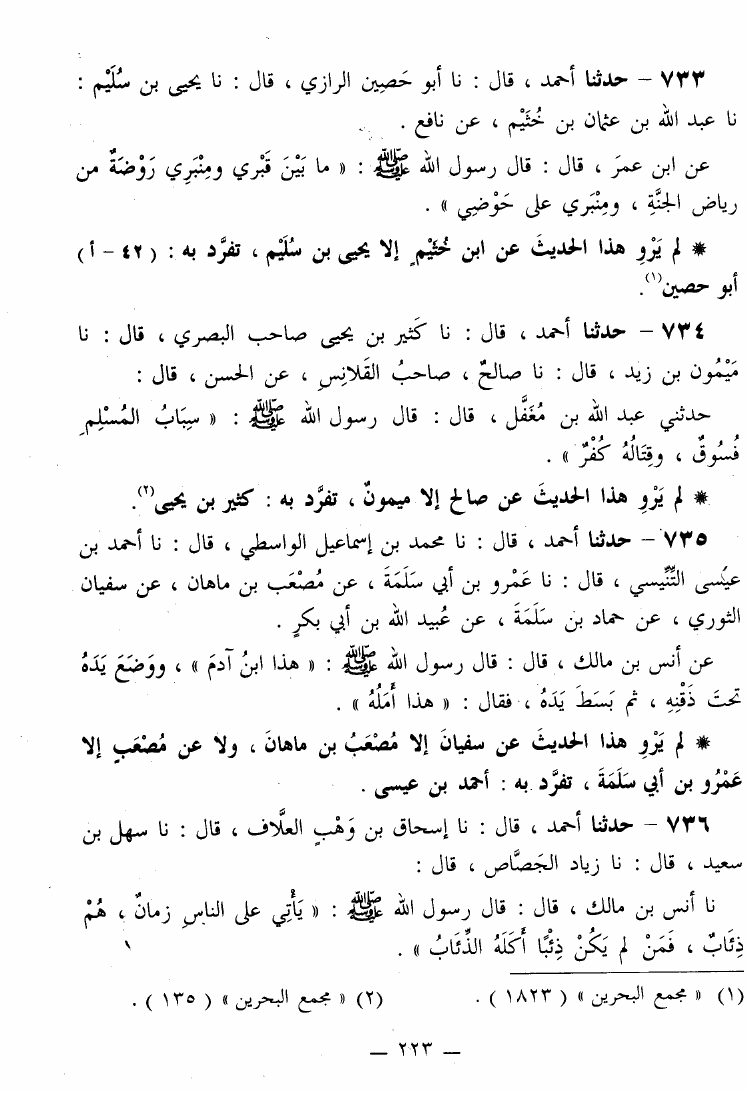 ٧٣٣ – حدثنا أحمد ، قال : نا أبو حَصِين الرازي ، قال : نا يحيى بن سُلَيْم :
نا عبد الله بن عثمان بن خُثَيْم ، عن نافع .
عن ابن عمرَ ، قال : قال رسول الله ﷺ : « ما بَيْنَ قَبْري ومِنْبَرِي رَوْضَةٌ من
رياض الجنَّةِ ، ومِنْبَري على حَوْضِي » .
* لم يَرْوِ هذا الحديثَ عن ابن خُثَيْمٍ إلا يحيى بن سُلَيْم ، تفرَّد به : ( ٤٢ – أ )
أبو حصين(١).
٧٣٤ – حدثنا أحمد ، قال : نا كَثير بن يحيى صاحب البصري ، قال : نا
مَيْمُون بن زيد ، قال : نا صالحٌ ، صاحبُ القَلانِسِ ، عن الحسن ، قال :
حدثني عبد الله بن مُغَفَّل ، قال : قال رسول الله ﷺ : « سِبَابُ المُسْلِمِ
فُسُوقٌ ، وقِتَالُهُ كُفْرٌ » .
* لم يَرْوِ هذا الحديثَ عن صالح إلا ميمونٌ ، تفرَّد به : كثير بن يحيى(٢).
٧٣٥ – حدثنا أحمد ، قال : نا محمد بن إسماعيل الواسطي ، قال : نا أحمد بن
عيسى التِّنِّيسي ، قال : نا عَمْرو بن أبي سَلَمَةَ ، عن مُصْعَب بن ماهان ، عن سفيان
الثوري ، عن حماد بن سَلَمَةَ ، عن عُبيد الله بن أبي بكرٍ .
عن أنس بن مالك ، قال : قال رسول الله ﷺ : « هذا ابنُ آدمَ » ، ووَضَعَ يَدَهُ
تحتَ ذَقْنِهِ ، ثم بَسَطَ يَدَهُ ، فقال : « هذا أَمَلُهُ » .
* لم يَرْوِ هذا الحديثَ عن سفيانَ إلا مُصْعَبُ بن ماهانَ ، ولا عن مُصْعَبٍ إلا
عَمْرُو بن أبي سَلَمَةَ ، تفرَّد به : أحمد بن عيسى .
٧٣٦ – حدثنا أحمد ، قال : نا إسحاق بن وَهْبٍ العلَّاف ، قال : نا سهل بن
سعيد ، قال : نا زياد الجَصَّاص ، قال :
نا أنس بن مالك ، قال : قال رسول الله ﷺ : « يَأْتِي على الناسِ زمانٌ ، هُمْ
ذِئَابٌ ، فَمَنْ لم يَكُنْ ذِئْبًا أَكَلَهُ الذِّئَابُ » .
(١) « مجمع البحرين » ( ١٨٢٣ ) .
(٢) « مجمع البحرين » ( ١٣٥ ) .
— ٢٢٣ —